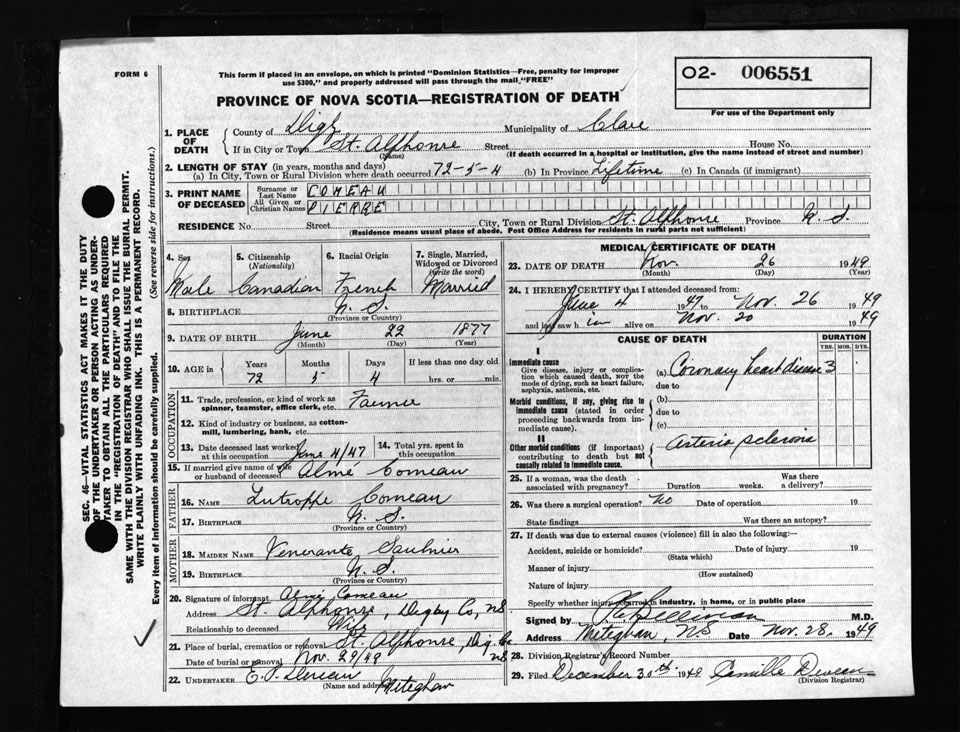 FORM 6
This form if placed in an envelope, on which is printed "Dominion Statistics—Free, penalty for improper
use $300," and properly addressed will pass through the mail "FREE"
O2- 006551
For use of the Department only
PROVINCE OF NOVA SCOTIA—REGISTRATION OF DEATH
1. PLACE OF DEATH { County of Digby Municipality of Clare
If in City or Town St. Alphonse Street House No.
(Name) (If death occurred in a hospital or institution, give the name instead of street and number)
2. LENGTH OF STAY (in years, months and days)
(a) In City, Town or Rural Division where death occurred 72-5-4 (b) In Province Lifetime (c) In Canada (if immigrant)
3. PRINT NAME OF DECEASED { Surname or Last Name COMEAU
All Given or Christian Names PIERRE
RESIDENCE No. Street City, Town or Rural Division St. Alphonse Province N. S.
(Residence means usual place of abode. Post Office Address for residents in rural parts not sufficient)
4. Sex 5. Citizenship (Nationality) 6. Racial Origin 7. Single, Married, Widowed or Divorced (Write the word)
Male Canadian French Married
8. BIRTHPLACE N. S.
(Province or Country)
9. DATE OF BIRTH June 22 1877
(Month) (Day) (Year)
10. AGE in { Years Months Days If less than one day old
72 5 4 hrs. or min.
OCCUPATION
11. Trade, profession, or kind of work as
spinner, teamster, office clerk, etc. Farmer
12. Kind of industry or business, as cotton-
mill, lumbering, bank, etc.
13. Date deceased last worked at this occupation June 4/47 14. Total yrs. spent in this occupation
15. If married give name of wife
or husband of deceased Almé Comeau
FATHER
16. NAME Comeau
17. BIRTHPLACE N. S.
(Province or Country)
MOTHER
18. MAIDEN NAME Venerante Saulnier
19. BIRTHPLACE N. S.
(Province or Country)
20. Signature of informant Almé Comeau
Address St. Alphonse, Digby Co, NS
Relationship to deceased Wife
21. Place of burial, cremation or removal St. Alphonse, Dig. Co NS
Date of burial or removal Nov. 29/49
22. UNDERTAKER E. P. Meteghan
(Name and address)
MEDICAL CERTIFICATE OF DEATH
23. DATE OF DEATH Nov. 26 1949
(Month) (Day) (Year)
24. I HEREBY CERTIFY that I attended deceased from:
June 4 1947 to Nov. 26 1949
and last saw him alive on Nov. 20 1949
CAUSE OF DEATH DURATION
YRS. MOS. DYS.
I
Immediate cause
Give disease, injury or complica-
tion which caused death, NOT the
mode of dying, such as heart failure,
asphyxia, asthenia, etc.
(a) Coronary heart disease 3
due to
Morbid conditions, if any, giving rise to
immediate cause (stated in order
proceeding backwards from im-
mediate cause).
(b)
due to
(c)
II
Other morbid conditions (if important)
contributing to death but not
causally related to immediate cause.
Arterio sclerosis
25. If a woman, was the death
associated with pregnancy? Duration weeks. Was there a delivery?
26. Was there a surgical operation? No Date of operation 19
State findings Was there an autopsy?
27. If death was due to external causes (violence) fill in also the following:—
Accident, suicide or homicide? Date of injury 19
(State which)
Manner of injury
(How sustained)
Nature of injury
Specify whether injury occurred in industry, in home, or in public place
Signed by M.D.
Address Meteghan, N.S Date Nov. 28, 1949
28. Division Registrar's Record Number
29. Filed December 30th 1949 Camille Deveau
(Division Registrar)
SEC. 46—VITAL STATISTICS ACT MAKES IT THE DUTY
OF THE UNDERTAKER OR PERSON ACTING AS UNDER-
TAKER TO OBTAIN ALL THE PARTICULARS REQUIRED
IN THE "REGISTRATION OF DEATH" AND TO FILE THE
SAME WITH THE DIVISION REGISTRAR WHO SHALL ISSUE THE BURIAL PERMIT.
WRITE PLAINLY WITH UNFADING INK. THIS IS A PERMANENT RECORD.
Every item of information should be carefully supplied. (See reverse side for instructions.)